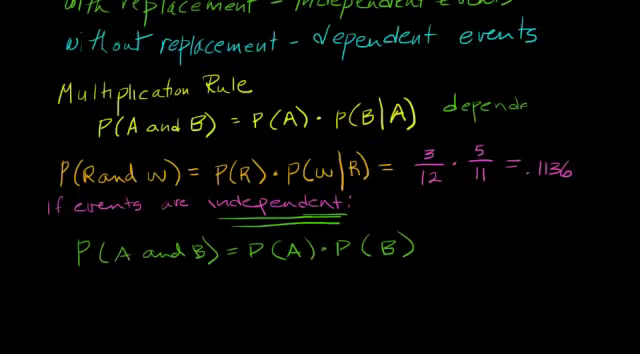 with replacement - independent events
without replacement - dependent events
Multiplication Rule
P(A and B) = P(A) · P(B|A) depende
P(R and W) = P(R) · P(W|R) = 3/12 · 5/11 = .1136
If events are independent:
P(A and B) = P(A) · P(B)